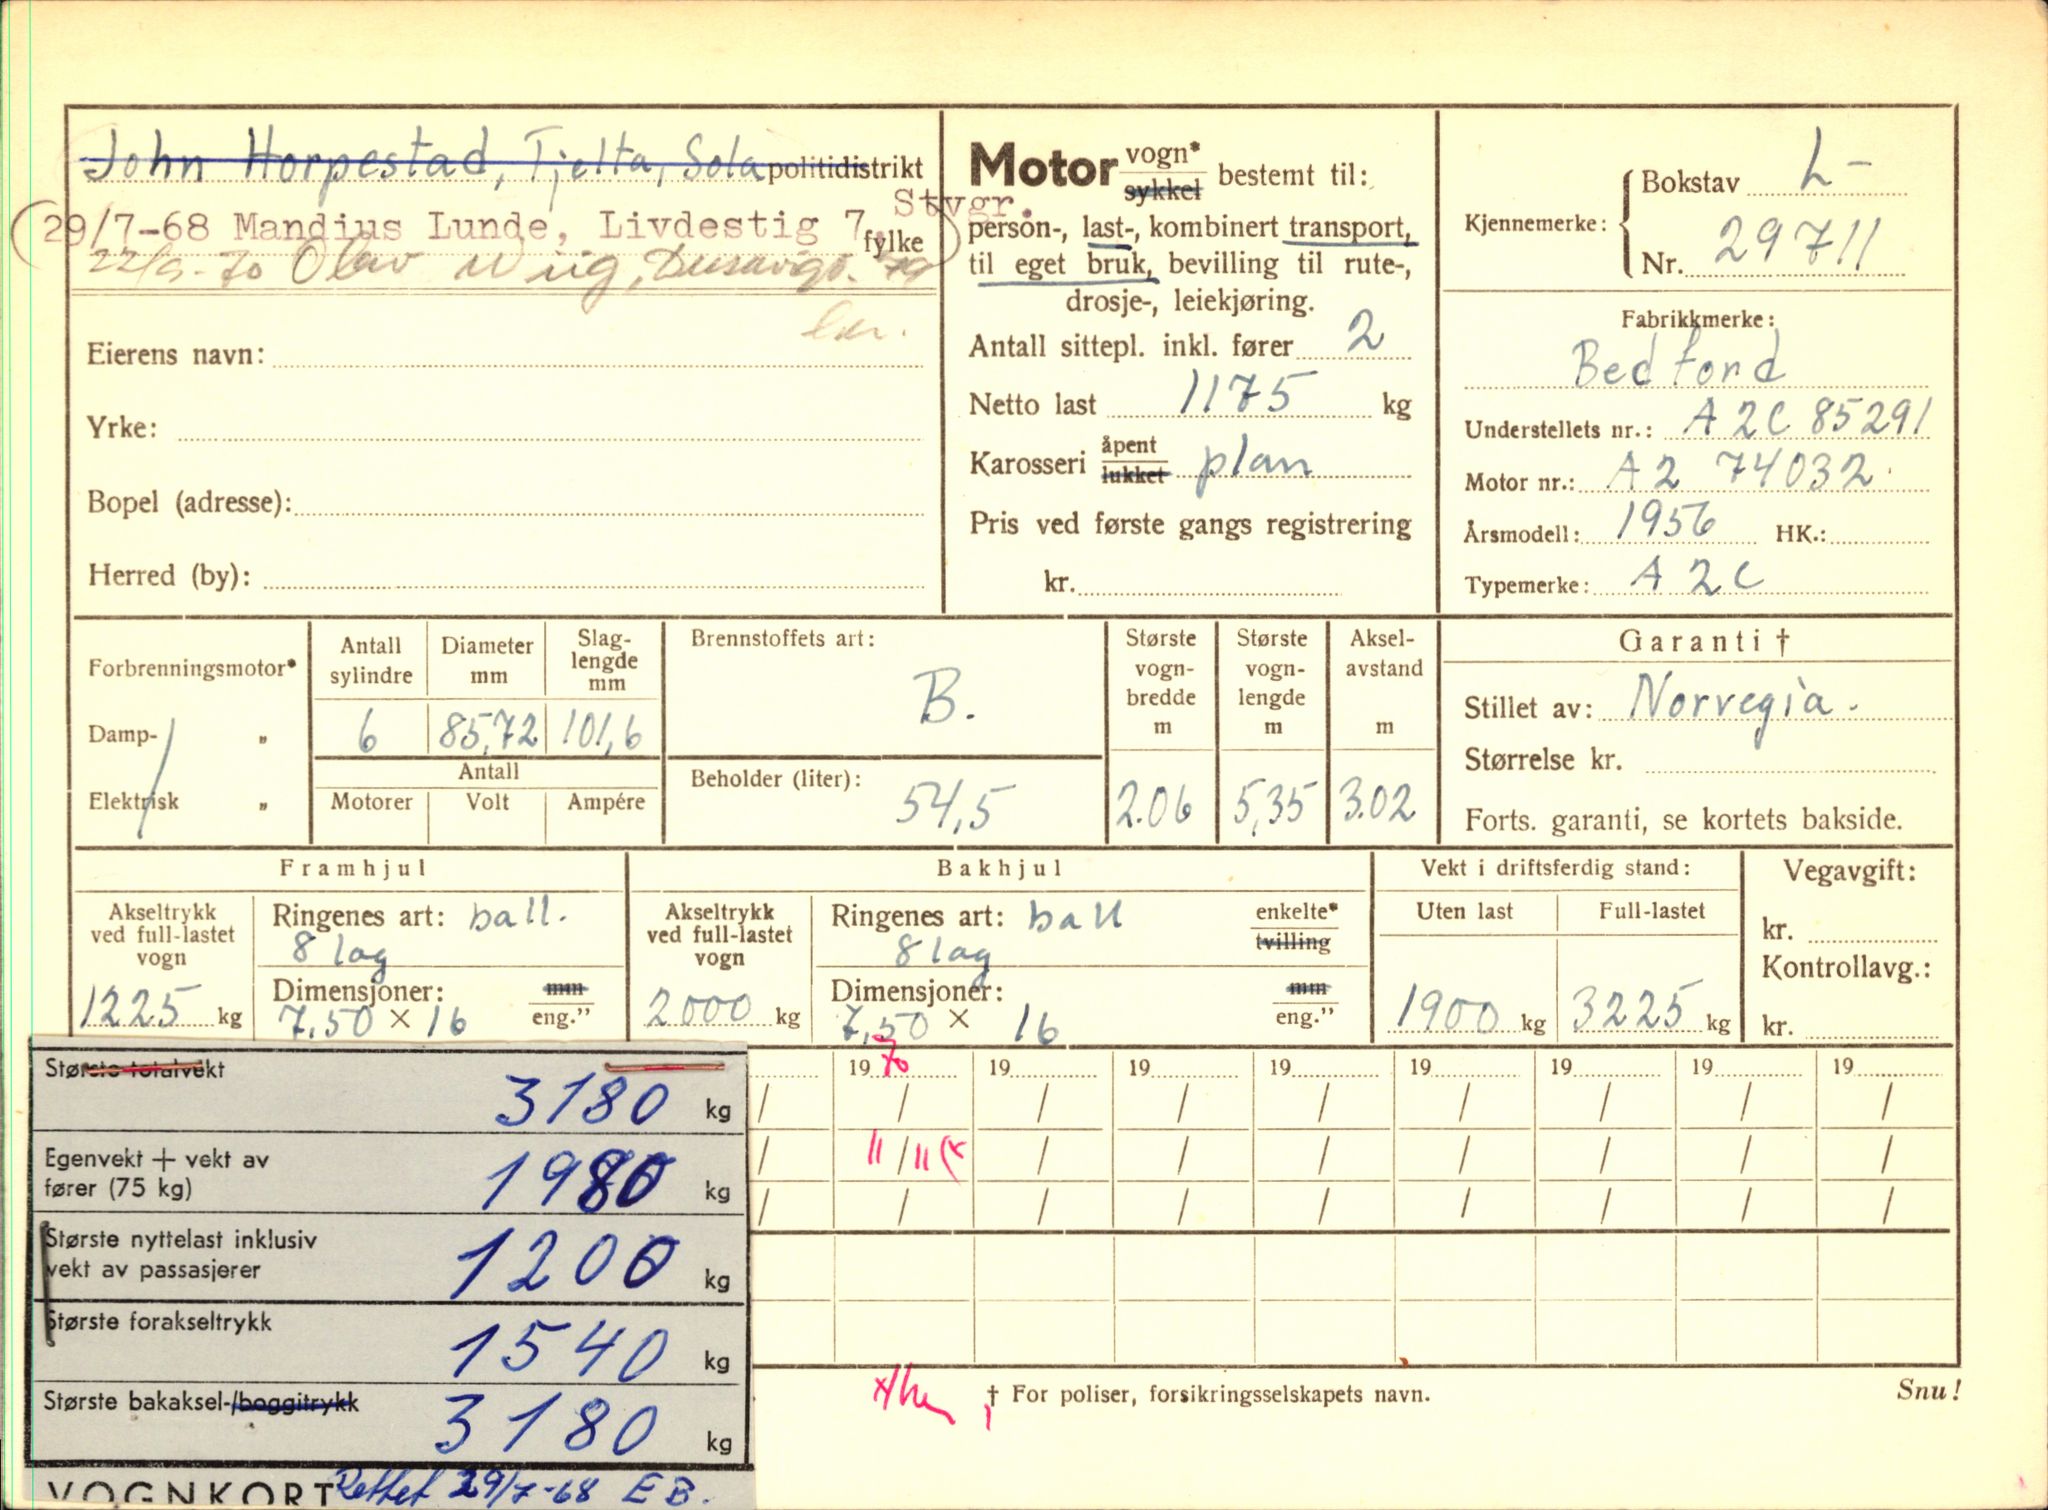 John Horpestad, Tjelta, Sola politidistrikt
Stvgr.
(29/7-68 Mandius Lunde, Livdestig 7. fylke)
22/9-70 Olav Wiig, Dusavigv. 79
Eierens navn:
Yrke:
Bopel (adresse):
Herred (by):
Motor vogn* sykkel bestemt til:
person-, last-, kombinert transport,
til eget bruk, bevilling til rute-,
drosje-, leiekjøring.
Antall sittepl. inkl. fører 2
Netto last 1175 kg
Karosseri åpent lukket plan
Pris ved første gangs registrering
kr.
Kjennemerke: Bokstav L-
Nr. 29711
Fabrikkmerke:
Bedford
Understellets nr.: A2C 85291
Motor nr.: A2 74032
Årsmodell: 1956 HK.:
Typemerke: A2C
Forbrenningsmotor*
Damp- „
Elektrisk „
Antall sylindre
Diameter mm
Slag-lengde mm
6 85,72 101,6
Antall
Motorer Volt Ampére
Brennstoffets art:
B.
Beholder (liter):
54,5
Største vogn-bredde m
2.06
Største vogn-lengde m
5,35
Aksel-avstand m
3.02
Garanti †
Stillet av: Norvegia.
Størrelse kr.
Forts. garanti, se kortets bakside.
Framhjul
Akseltrykk ved full-lastet vogn
1225 kg
Ringenes art: ball.
8 lag
Dimensjoner: mm
7,50 × 16 eng."
Bakhjul
Akseltrykk ved full-lastet vogn
2000 kg
Ringenes art: ball enkelte* tvilling
8 lag
Dimensjoner: mm
7,50 × 16 eng."
Vekt i driftsferdig stand:
Uten last Full-lastet
1900 kg 3225 kg
Vegavgift:
kr.
Kontrollavg.:
kr.
19 70 19 19 19 19 19 19 19
/ / / / / / / / /
/ 11/11 / / / / / / /
/ / / / / / / / /
Største totalvekt
3180 kg
Egenvekt + vekt av
fører (75 kg) 1980 kg
Største nyttelast inklusiv
vekt av passasjerer 1200 kg
Største forakseltrykk
1540 kg
Største bakaksel-/boggitrykk
3180 kg
VOGNKORT Rettet 29/7-68 EB.
† For poliser, forsikringsselskapets navn.
Snu!